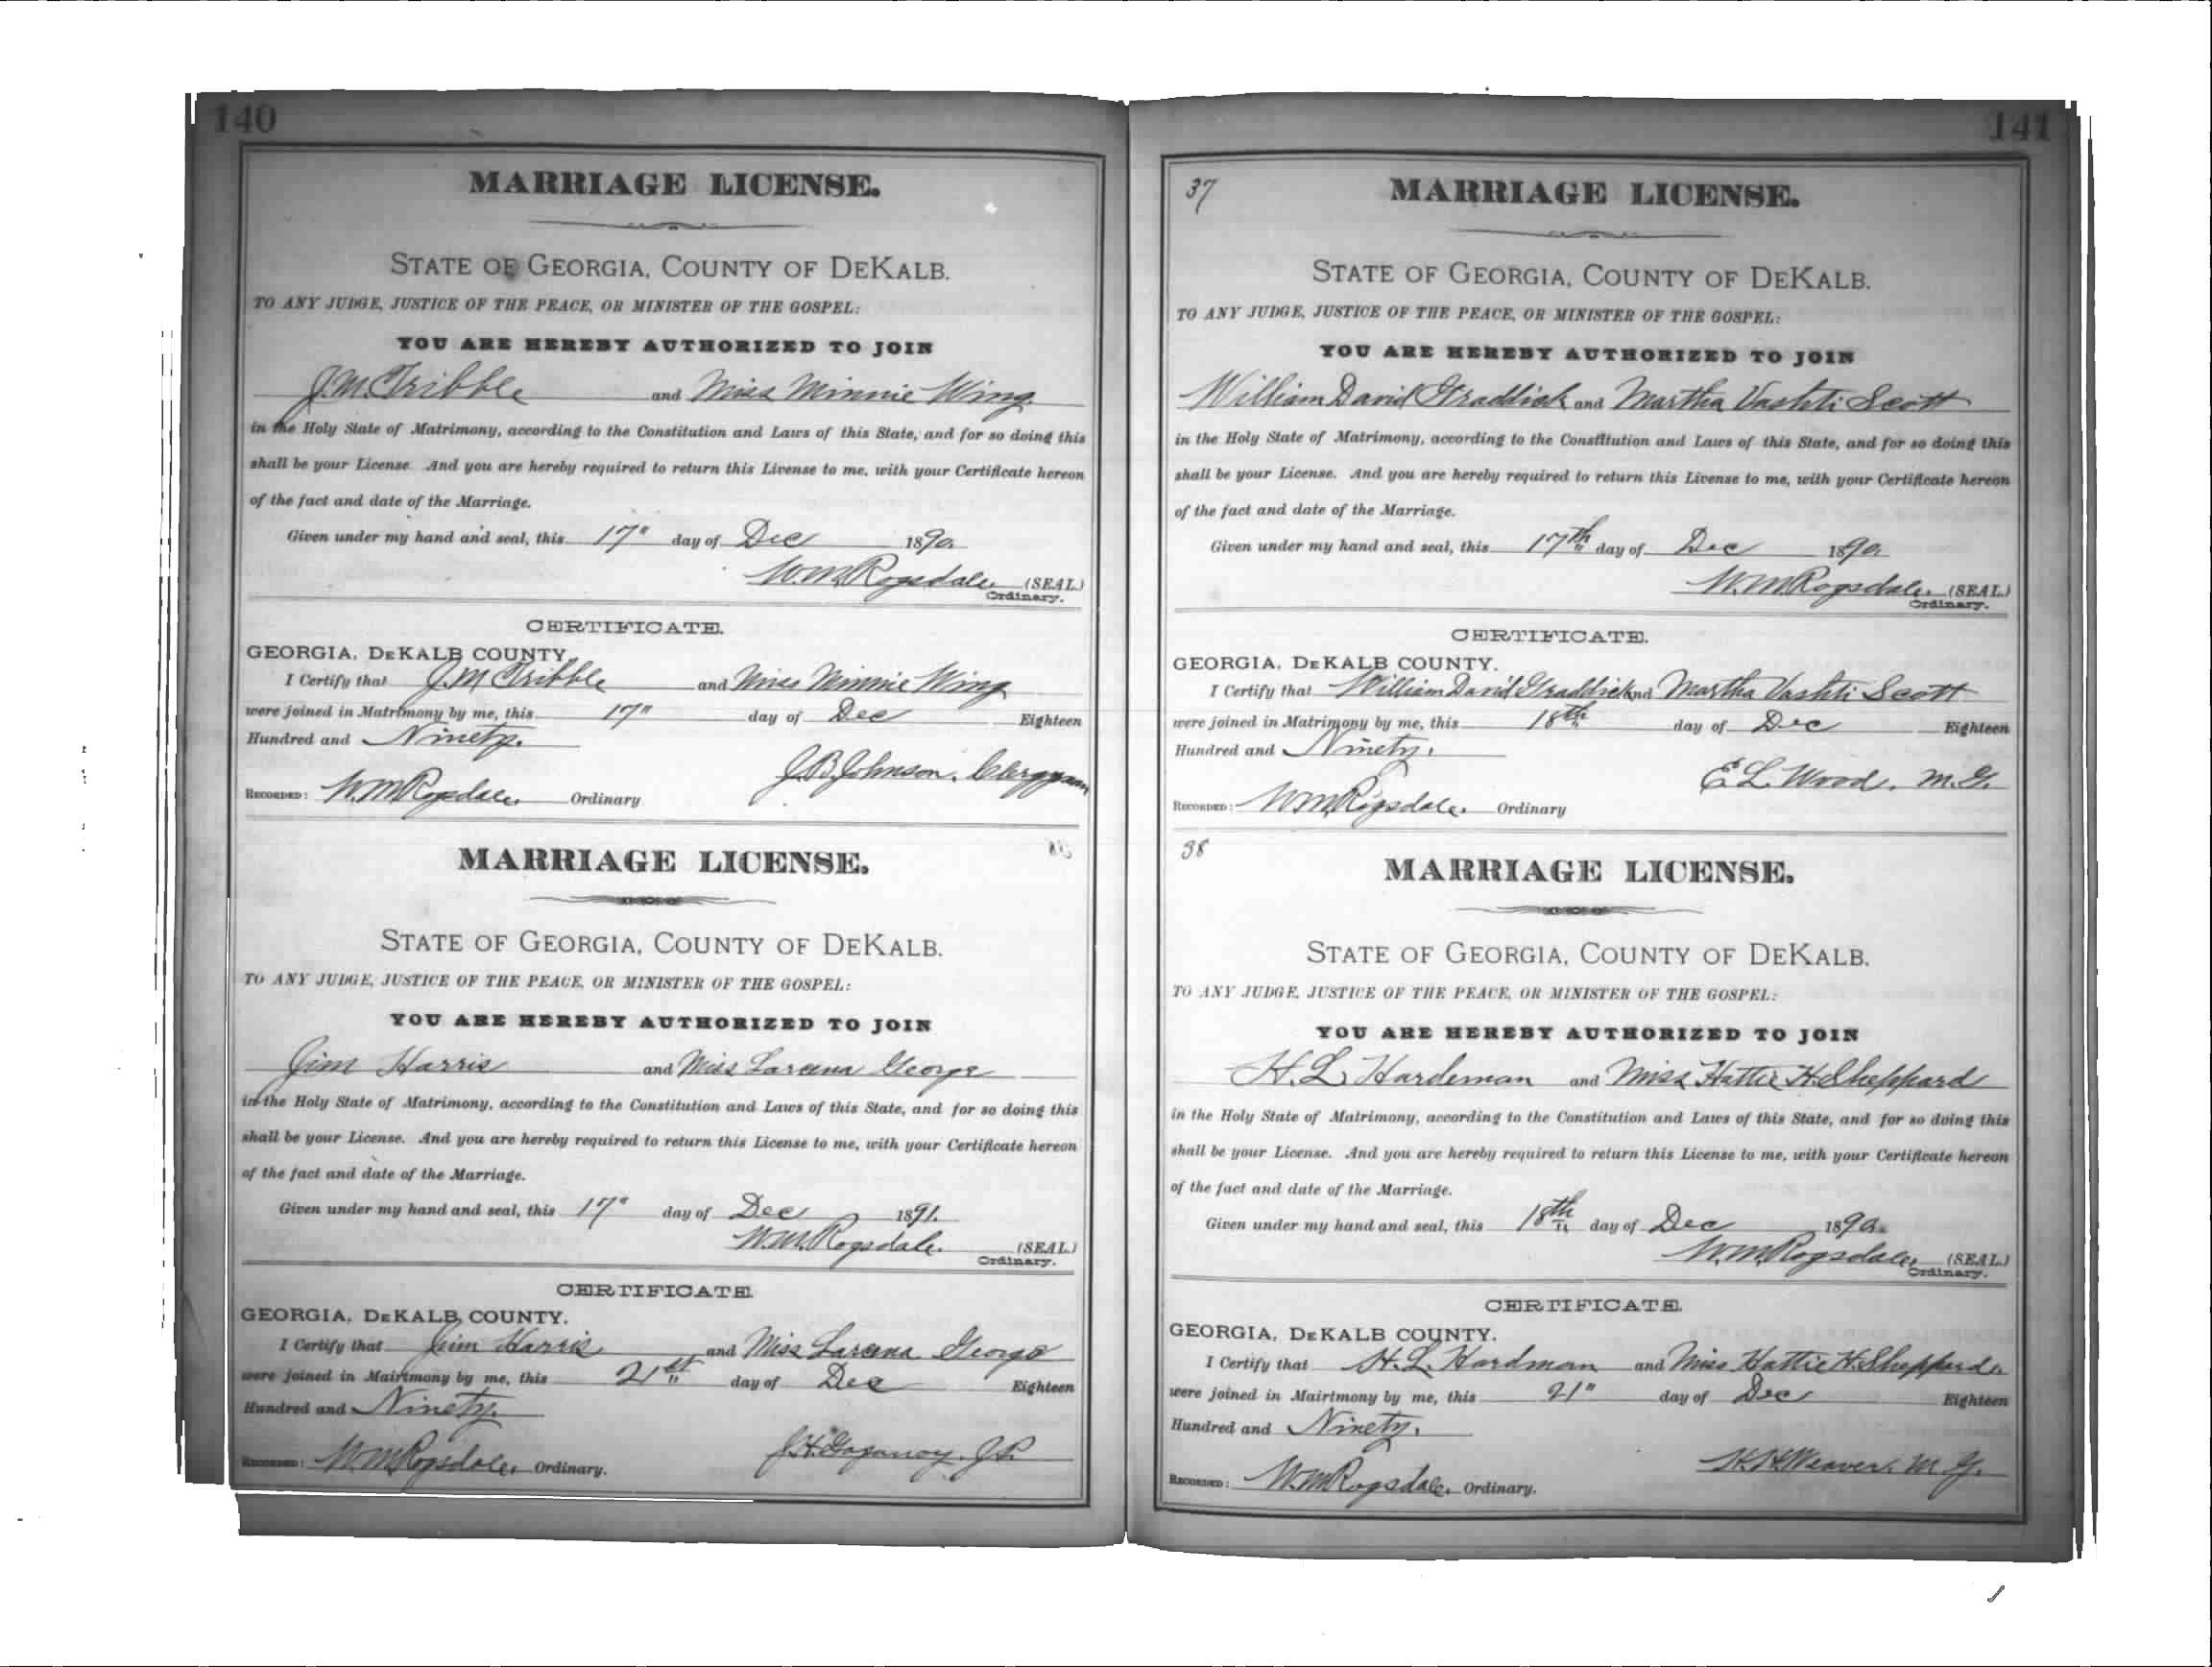 140
MARRIAGE LICENSE.
STATE OF GEORGIA, COUNTY OF DEKALB.
TO ANY JUDGE, JUSTICE OF THE PEACE, OR MINISTER OF THE GOSPEL:
YOU ARE HEREBY AUTHORIZED TO JOIN
J. M. Tribble and Miss Minnie Wing
in the Holy State of Matrimony, according to the Constitution and Laws of this State, and for so doing this
shall be your License. And you are hereby required to return this License to me, with your Certificate hereon
of the fact and date of the Marriage.
Given under my hand and seal, this 17" day of Dec 1890.
W. M. Ragsdale (SEAL)
Ordinary.
CERTIFICATE.
GEORGIA, DEKALB COUNTY,
I Certify that J. M. Tribble and Miss Minnie Wing
were joined in Matrimony by me, this 17" day of Dec Eighteen
Hundred and Ninety.
J. B. Johnson, Clergyman
RECORDED: W. M. Ragsdale, Ordinary
MARRIAGE LICENSE.
STATE OF GEORGIA, COUNTY OF DEKALB.
TO ANY JUDGE, JUSTICE OF THE PEACE, OR MINISTER OF THE GOSPEL:
YOU ARE HEREBY AUTHORIZED TO JOIN
Jim Harris and Miss George
in the Holy State of Matrimony, according to the Constitution and Laws of this State, and for so doing this
shall be your License. And you are hereby required to return this License to me, with your Certificate hereon
of the fact and date of the Marriage.
Given under my hand and seal, this 17" day of Dec 1891.
W. M. Ragsdale. (SEAL)
Ordinary.
CERTIFICATE.
GEORGIA, DEKALB COUNTY.
I Certify that Jim Harris and Miss George
were joined in Mairtmony by me, this 21st day of Dec Eighteen
Hundred and Ninety.
J. P.
RECORDED: W. M. Ragsdale, Ordinary.
141
37
MARRIAGE LICENSE.
STATE OF GEORGIA, COUNTY OF DEKALB.
TO ANY JUDGE, JUSTICE OF THE PEACE, OR MINISTER OF THE GOSPEL:
YOU ARE HEREBY AUTHORIZED TO JOIN
William David Graddick and Martha Vashti Scott
in the Holy State of Matrimony, according to the Constitution and Laws of this State, and for so doing this
shall be your License. And you are hereby required to return this License to me, with your Certificate hereon
of the fact and date of the Marriage.
Given under my hand and seal, this 17th day of Dec 1890.
W. M. Ragsdale, (SEAL)
Ordinary.
CERTIFICATE.
GEORGIA, DEKALB COUNTY.
I Certify that William David Graddick and Martha Vashti Scott
were joined in Matrimony by me, this 18th day of Dec Eighteen
Hundred and Ninety.
E. L. Wood, M. G.
RECORDED: W. M. Ragsdale. Ordinary
38
MARRIAGE LICENSE.
STATE OF GEORGIA, COUNTY OF DEKALB.
TO ANY JUDGE, JUSTICE OF THE PEACE, OR MINISTER OF THE GOSPEL:
YOU ARE HEREBY AUTHORIZED TO JOIN
H. L. Hardeman and Miss Hattie H. Sheppard
in the Holy State of Matrimony, according to the Constitution and Laws of this State, and for so doing this
shall be your License. And you are hereby required to return this License to me, with your Certificate hereon
of the fact and date of the Marriage.
Given under my hand and seal, this 18th day of Dec 1890.
W. M. Ragsdale, (SEAL)
Ordinary.
CERTIFICATE.
GEORGIA, DEKALB COUNTY.
I Certify that H. L. Hardman and Miss Hattie H. Sheppard.
were joined in Mairtmony by me, this 21" day of Dec Eighteen
Hundred and Ninety.
Weaver, M. G.
RECORDED: W. M. Ragsdale, Ordinary.